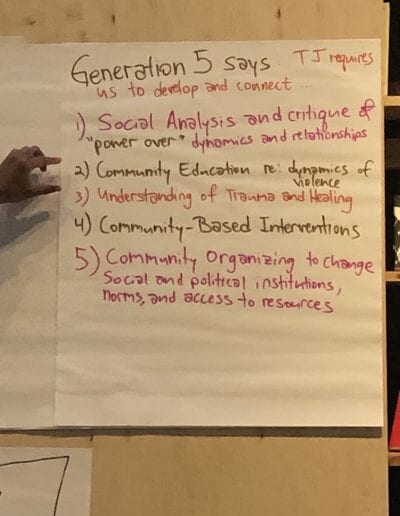 Generation 5 says TJ requires
us to develop and connect...
1) Social Analysis and critique of
"power over" dynamics and relationships
2) Community Education re: dynamics of
violence
3) Understanding of Trauma and Healing
4) Community-Based Interventions
5) Community Organizing to change
Social and political institutions,
norms, and access to resources